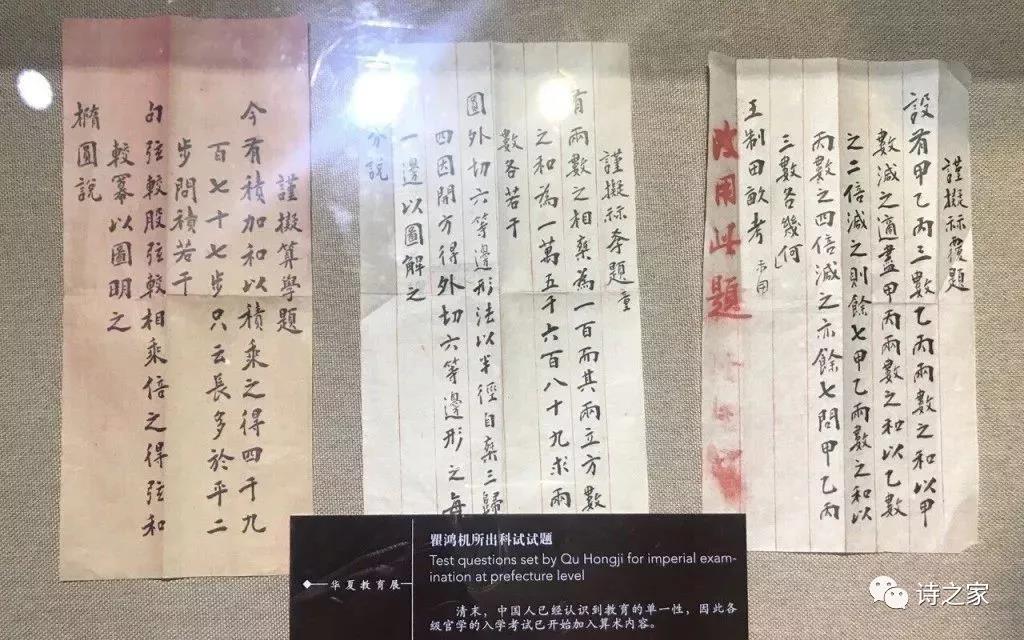 謹擬祘覆題
設有甲乙丙三數乙丙兩數之和以甲
數減之適盡甲丙兩數之和以乙數
之二倍減之則餘七甲乙兩數之和以
丙數之四倍減之亦餘七問甲乙丙
三數各幾何
王制田畝考
改用此題
謹擬祘題
有兩數之相乘為一百而其兩立方數
之和為一萬五千六百八十九求兩
數各若干
圓外切六等邊形法以半徑自乘三歸
四因開方得外切六等邊形之每
一邊以圖解之
分說
謹擬算學題
今有積加和以積乘之得四千九
百七十七步只云長多於平二
步問積若干
勾弦較股弦較相乘倍之得弦和
較冪以圖明之
橢圓說
华夏教育展
瞿鸿机所出科试试题
Test questions set by Qu Hongji for imperial exam-
ination at prefecture level
清末，中国人已经认识到教育的单一性，因此各
级官学的入学考试已开始加入算术内容。
诗之家